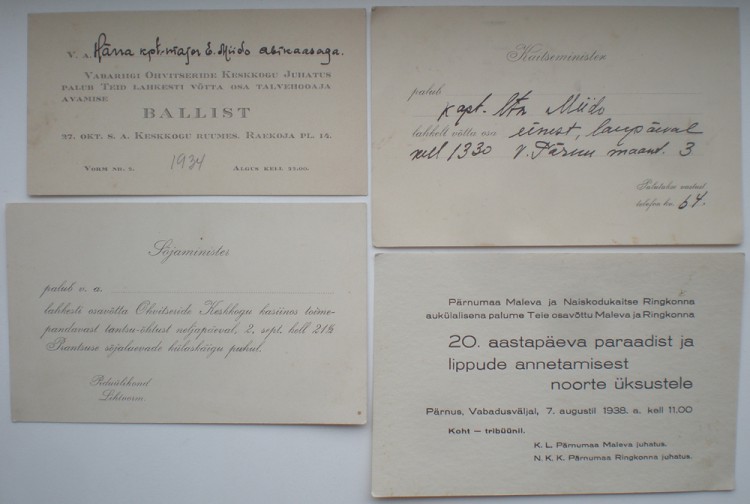 V. a. Härra kpt.-major E. Miido abikaasaga.
Vabariigi Ohvitseride Keskkogu Juhatus
palub Teid lahkesti võtta osa talvehooaja
avamise
BALLIST
27. okt. s. a. Keskkogu ruumes, Raekoja pl. 14.
1934
Vorm nr. 2. Algus kell 21.00.
Kaitseminister
palub
kapt. Miido
lahkelt võtta osa einest, laupäeval
kell 1330 V. Pärnu maant. 3
Palutakse vastust
telefon nr. 64.
Sõjaminister
palub v. a.
lahkesti osavõtta Ohvitseride Keskkogu kasiinos toime-
pandavast tantsu-õhtust neljapäeval, 2. sept. kell 21½
Prantsuse sõjalaevade külaskäigu puhul.
Piduülikond
Lahtuusa.
Pärnumaa Maleva ja Naiskodukaitse Ringkonna
aukülalisena palume Teie osavõttu Maleva ja Ringkonna
20. aastapäeva paraadist ja
lippude annetamisest
noorte üksustele
Pärnus, Vabadusväljal, 7. augustil 1938. a. kell 11.00
Koht — tribüünil.
K. L. Pärnumaa Maleva juhatus.
N. K. K. Pärnumaa Ringkonna juhatus.